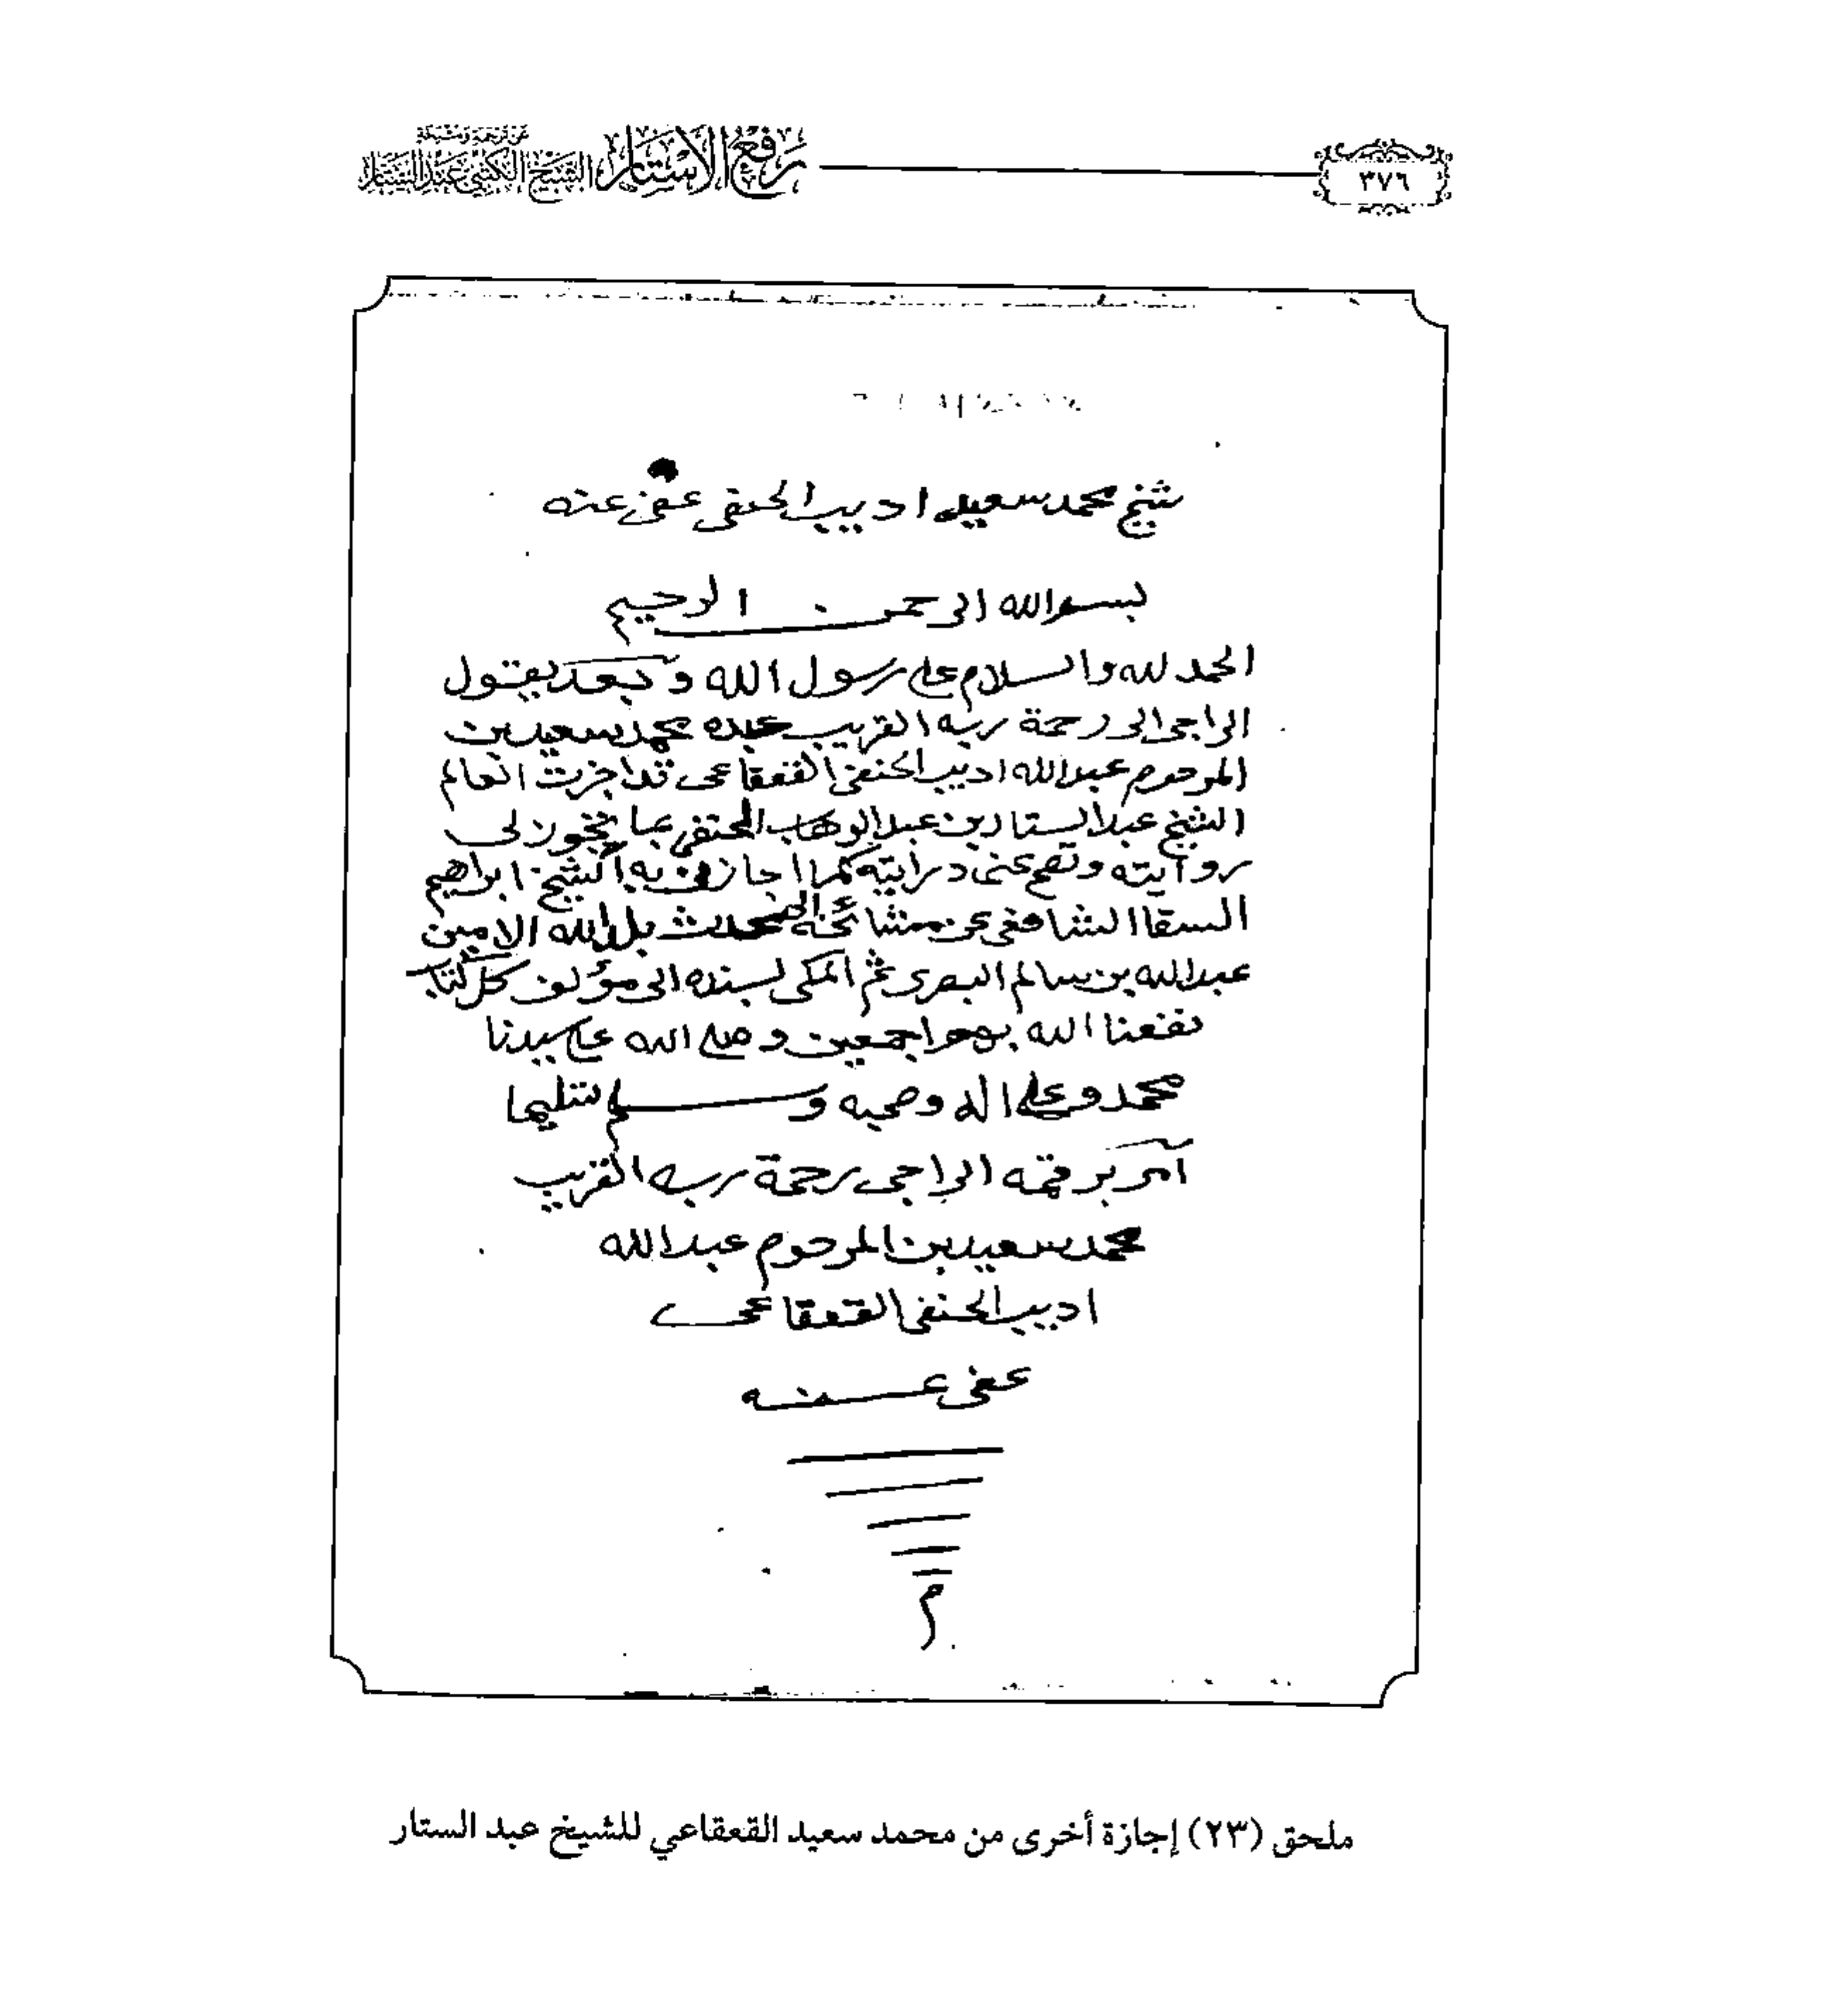 ٣٧٦
رفع الأستار
الشيخ الكتبي عبد الستار
شيخ محمد سعيد اديب الحنفي عفى عنه
بسم الله الرحمن الرحيم
الحمد لله والسلام على رسول الله وبعد يقول
الراجي الى رحمة ربه القريب عبده محمد سعيد بن
المرحوم عبدالله اديب الحنفي القعقاعى قد اجزت العالم
الشيخ عبد الستار بن عبد الوهاب الحنفي بما تجوز لى
روايته وتصح عنى درايته كما اجازنى به الشيخ ابراهيم
السقا الشافعي عن مشائخه المحدث ببلد الله الامين
عبدالله بن سالم البصرى ثم المكى لسنده الى مؤلف كل كتاب
نفعنا الله بهم اجمعين وصلى الله على سيدنا
محمد وعلى اله وصحبه وسلم تسليما
آمر برقمه الراجى رحمة ربه القريب
محمد سعيد بن المرحوم عبدالله
اديب الحنفي القعقاعى
عفى عنه
م
ملحق (٢٣) إجازة أخرى من محمد سعيد القعقاعي للشيخ عبد الستار